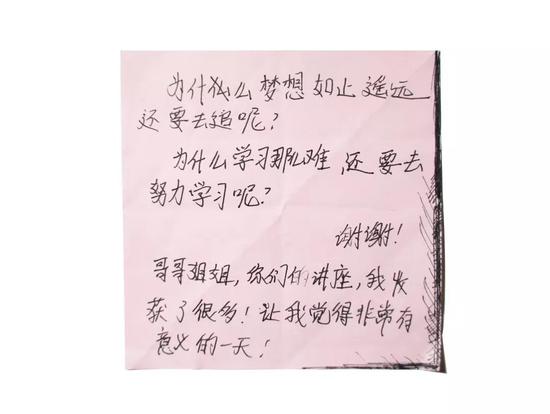 为什么梦想如此遥远
还要去追呢？
为什么学习那么难，还要去
努力学习呢？
谢谢！
哥哥姐姐，你们的讲座，我收
获了很多！让我觉得非常有
意义的一天！